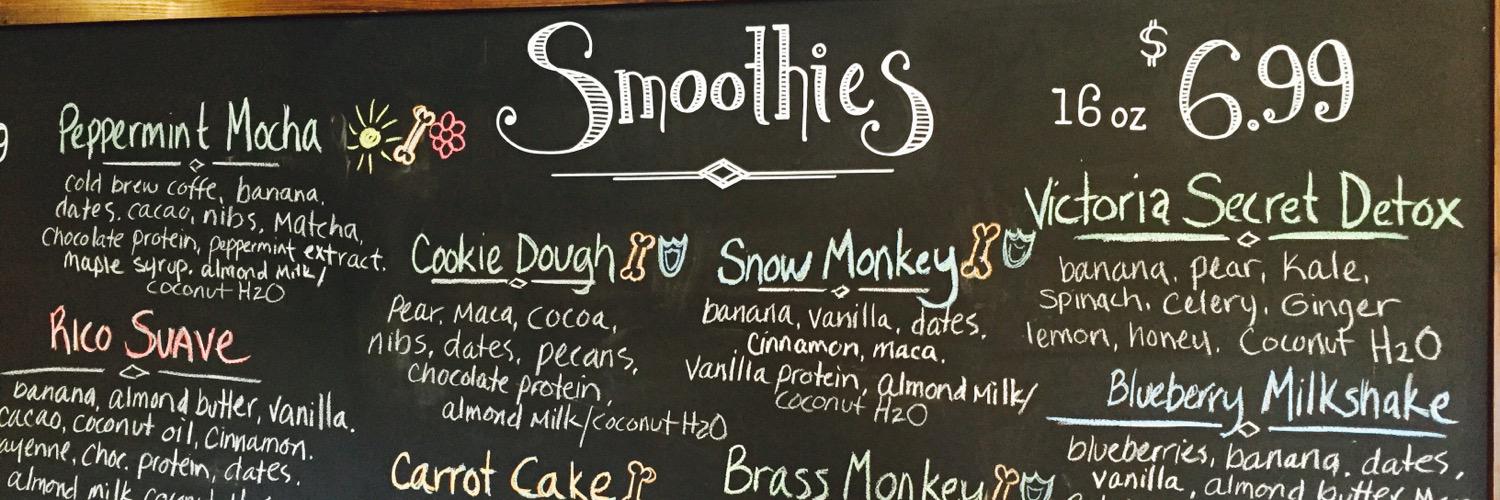 Smoothies
16 oz $6.99
Peppermint Mocha
cold brew coffe, banana,
dates, cacao, nibs, Matcha,
chocolate protein, peppermint extract.
maple syrup, almond milk/
coconut H2O
Rico Suave
banana, almond butter, vanilla.
cacao, coconut oil, cinnamon.
ayenne, choc. protein, dates.
almond milk
Cookie Dough
Pear, Maca, cocoa,
nibs, dates, pecans,
chocolate protein,
almond milk/coconut H2O
Carrot Cake
Snow Monkey
banana, vanilla, dates.
cinnamon, maca.
vanilla protein, almond milk/
coconut H2O
Brass Monkey
Victoria Secret Detox
banana, pear, Kale,
Spinach, Celery, Ginger
lemon, honey, Coconut H2O
Blueberry Milkshake
blueberries, banana, dates,
vanilla, almond butter